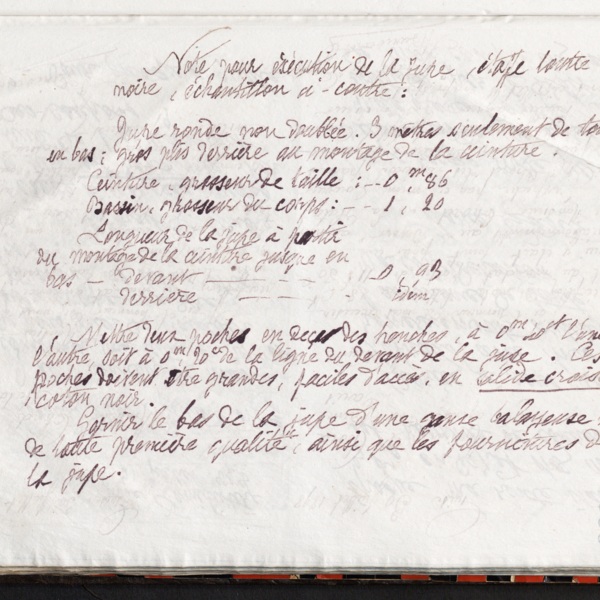 Note pour exécution de la jupe, étoffe loutre
noire, échantillon ci-contre :
Jupe ronde non doublée. 3 mètres seulement de tou
en bas ; gros plis derrière au montage de la ceinture.
Ceinture, grosseur de taille : — 0 m, 86
Bassin, grosseur du corps : — 1, 20
Longueur de la jupe à partir
du montage de la ceinture jusque en
bas — devant — 0, 93
derrière — — — idem
Mettre deux poches, en deçà des hanches, à 0m 20ct l'une
l'autre, soit à 0m 20ct de la ligne du devant de la jupe. Ces
poches doivent être grandes, faciles d'accès, en solide croisé
coton noir.
Garnir le bas de la jupe d'une ganse balayeuse
de toute première qualité, ainsi que les fournitures de
la jupe.